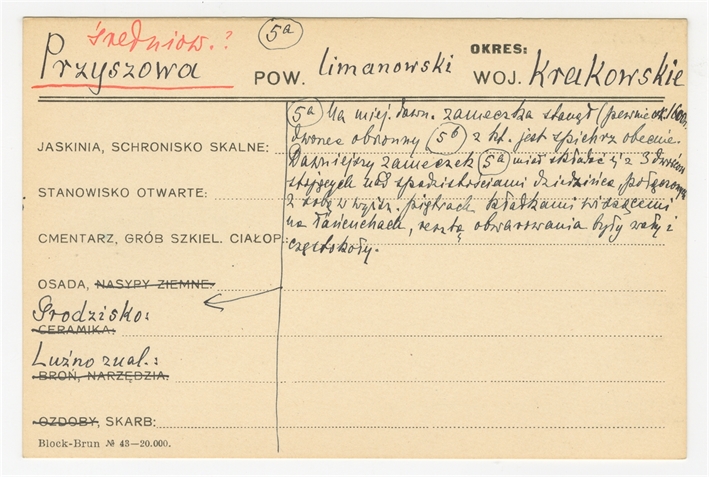 średniow.?
5a
OKRES:
Przyszowa POW. limanowski WOJ. Krakowskie
5a Na miej. dawn. zameczka stanął (pewnie ok. 1600r.
dworzec obronny 5b z kt. jest spichrz obecnie.
JASKINIA, SCHRONISKO SKALNE:
Dawniejszy zameczek 5a miał składać się z 3 dworów
STANOWISKO OTWARTE:
stojących nad spadzistościami dziedzińca, połączonych
z sobą w wyższ. piętrach kładkami wiszącemi
CMENTARZ, GRÓB SZKIEL. CIAŁOP.:
na łańcuchach, resztą obwarowania były wały i
częstokoły.
OSADA, NASYPY ZIEMNE:
Grodzisko:
CERAMIKA:
Luźno znal.:
BROŃ, NARZĘDZIA.
OZDOBY, SKARB:
Block-Brun № 43—20.000.